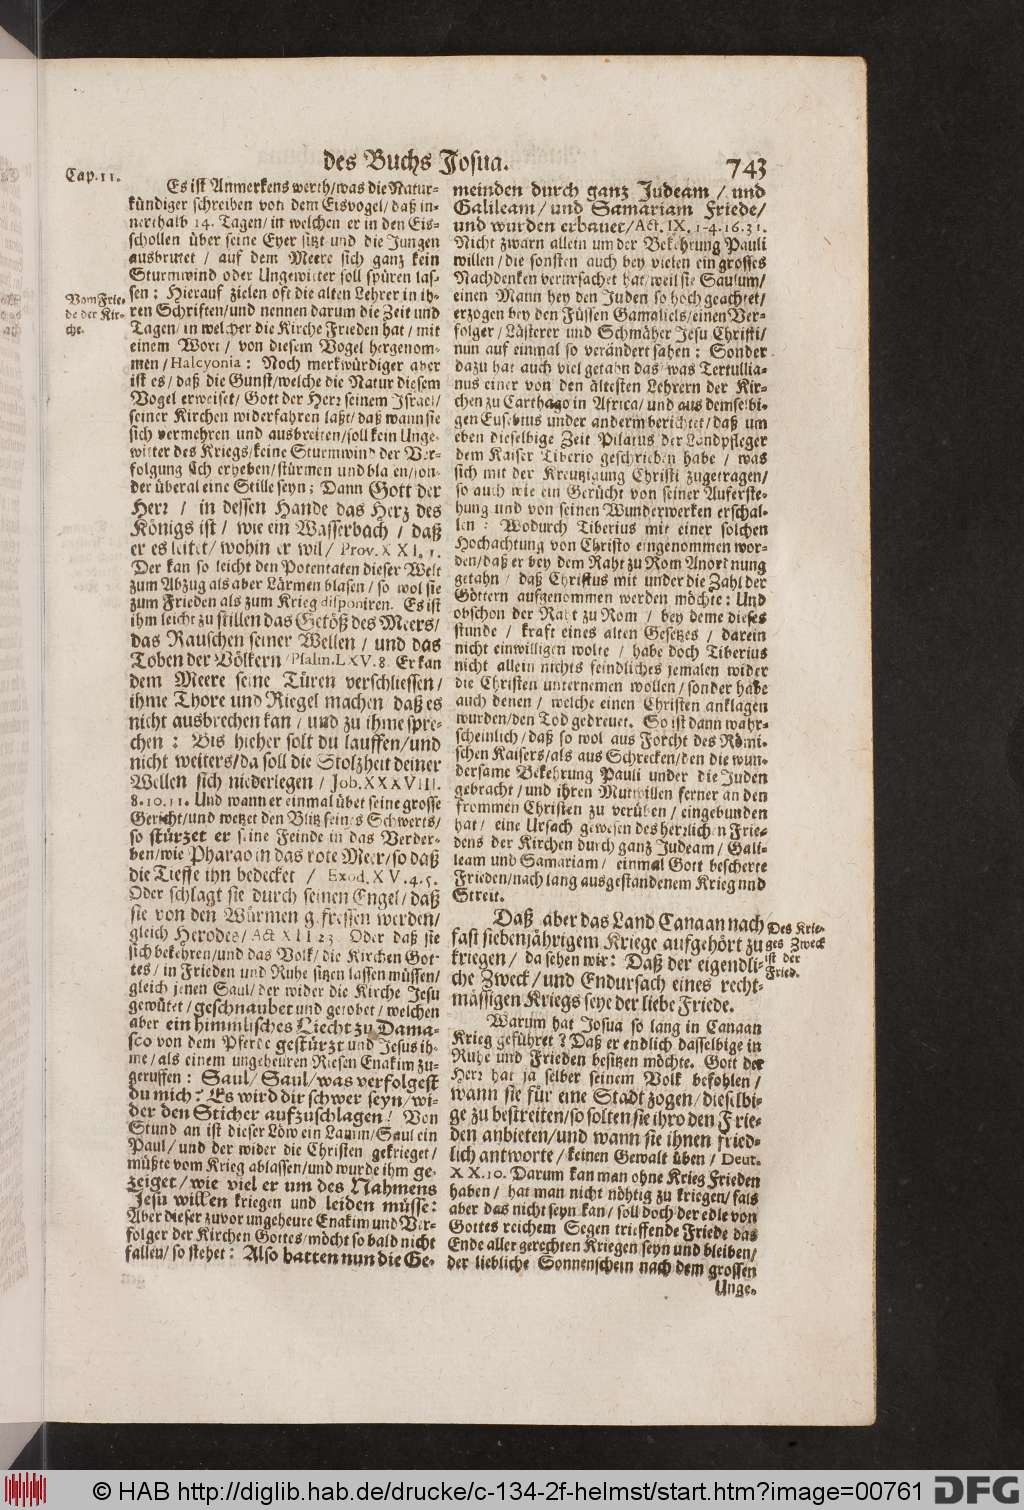 des Buchs Josua.
743
Cap. 11.
Es ist Anmerkens werth/was die Natur-
kündiger schreiben von dem Eisvogel/daß in-
nerthalb 14. Tagen/in welchen er in den Eis-
schollen über seine Eyer sitzt und die Jungen
ausbrutet / auf dem Meere sich ganz kein
Sturmwind oder Ungewitter soll spüren las-
sen: Hierauf zielen oft die alten Lehrer in ih-
Vom Frie-
de der Kir-
che.
ren Schriften/und nennen darum die Zeit und
Tagen/in welcher die Kirche Frieden hat/ mit
einem Wort / von diesem Vogel hergenom-
men/Halcyonia: Noch merkwürdiger aber
ist es/ daß die Gunst/welche die Natur diesem
Vogel erweiset/ Gott der Herr seinem Israel/
seiner Kirchen widerfahren laßt/daß wann sie
sich vermehren und ausbreiten/soll kein Unge-
witter des Kriegs/keine Sturmwind der Ver-
folgung sich erheben/stürmen und blasen/son-
der überal eine Stille seyn; Dann Gott der
Herr / in dessen Hande das Herz des
Königs ist/ wie ein Wasserbach / daß
er es leitet/wohin er wil/ Prov. XXI. 1.
Der kan so leicht den Potentaten dieser Welt
zum Abzug als aber Lärmen blasen/ so wol sie
zum Frieden als zum Krieg disponiren. Es ist
ihm leicht zu stillen das Getöß des Meers/
das Rauschen seiner Wellen / und das
Toben der Völkern/Psalm. LXV. 8. Er kan
dem Meere seine Türen verschliessen/
ihme Thore und Riegel machen daß es
nicht ausbrechen kan / und zu ihme spre-
chen: Bis hieher solt du lauffen/und
nicht weiters/da soll die Stolzheit deiner
Wellen sich niederlegen / Job. XXXVIII.
8. 10. 11. Und wann er einmal übet seine grosse
Gericht/und wetzet den Blitz seines Schwerts/
so stürzet er seine Feinde in das Verder-
ben/wie Pharao in das rote Meer/so daß
die Tieffe ihn bedecket / Exod. XV. 4. 5.
Oder schlagt sie durch seinen Engel/daß
sie von den Würmen gefressen werden/
gleich Herodes/Act XII 23. Oder daß sie
sich bekehren/und das Volk/die Kirchen Got-
tes/ in Frieden und Ruhe sitzen lassen müssen/
gleich jenen Saul/der wider die Kirche Jesu
gewütet/geschnaubet und getobet/welchen
aber ein himmlisches Liecht zu Dama-
sco von dem Pferde gestürzt und Jesus ih-
me/als einem ungeheuren Riesen Enakim zu-
geruffen: Saul/Saul/was verfolgest
du mich? Es wird dir schwer seyn/wi-
der den Sticher aufzuschlagen! Von
Stund an ist dieser Löw ein Lamm/Saul ein
Paul/und der wider die Christen gekrieget/
müßte vom Krieg ablassen/und wurde ihm ge-
zeiget/wie viel er um des Nahmens
Jesu willen kriegen und leiden müsse:
Aber dieser zuvor ungeheure Enakim und Ver-
folger der Kirchen Gottes/möcht so bald nicht
fallen/so stehet: Also hatten nun die Ge-
meinden durch ganz Judeam / und
Galileam/ und Samariam Friede/
und wurden erbauet/Act. IX. 1-4. 16. 31.
Nicht zwarn allein um der Bekehrung Pauli
willen/die sonsten auch bey vielen ein grosses
Nachdenken verursachet hat/weil sie Saulum/
einen Mann bey den Juden so hoch geachtet/
erzogen bey den Füssen Gamaliels/einen Ver-
folger/Lästerer und Schmäher Jesu Christi/
nun auf einmal so verändert sahen: Sonder
dazu hat auch viel getahn das/was Tertullia-
nus einer von den ältesten Lehrern der Kir-
chen zu Carthago in Africa/und aus demselbi-
gen Eusebius under anderm berichtet/daß um
eben dieselbige Zeit Pilatus der Landpfleger
dem Kaiser Tiberio geschrieben habe / was
sich mit der Kreutzigung Christi zugetragen/
so auch wie ein Gerücht von seiner Auferste-
hung und von seinen Wunderwerken erschal-
len: Wodurch Tiberius mit einer solchen
Hochachtung von Christo eingenommen wor-
den/daß er bey dem Raht zu Rom Anordnung
getahn / daß Christus mit under die Zahl der
Göttern aufgenommen werden möchte: Und
obschon der Raht zu Rom / bey deme dieses
stunde / kraft eines alten Gesetzes / darein
nicht einwilligen wolte / habe doch Tiberius
nicht allein nichts feindliches jemalen wider
die Christen unternemen wollen/sonder habe
auch denen / welche einen Christen anklagen
wurden/den Tod gedreuet. So ist dann wahr-
scheinlich/daß so wol aus Forcht des Römi-
schen Kaisers/als aus Schrecken/den die wun-
dersame Bekehrung Pauli under die Juden
gebracht/und ihren Mutwillen ferner an den
frommen Christen zu verüben/eingebunden
hat/ eine Ursach gewesen des herzlichen Frie-
dens der Kirchen durch ganz Judeam/Gali-
leam und Samariam/ einmal Gott bescherte
Frieden/nach lang ausgestandenem Krieg und
Streit.
Daß aber das Land Canaan nach
fast siebenjährigem Kriege aufgehört zu
kriegen / da sehen wir: Daß der eigendli-
che Zweck/und Endursach eines recht-
mässigen Kriegs seye der liebe Friede.
Des Krie-
ges Zweck
ist der
Fried.
Warum hat Josua so lang in Canaan
Krieg geführet? Daß er endlich dasselbige in
Ruhe und Frieden besitzen möchte. Gott der
Herr hat ja selber seinem Volk befohlen/
wann sie für eine Stadt zogen/dieselbi-
ge zu bestreiten/so solten sie ihro den Frie-
den anbieten/und wann sie ihnen fried-
lich antworte/keinen Gewalt üben/ Deut.
XX. 10. Darum kan man ohne Kries Frieden
haben/ hat man nicht nöhtig zu kriegen/fals
aber das nicht seyn kan/soll doch der edle von
Gottes reichem Segen trieffende Friede das
Ende aller gerechten Kriegen seyn und bleiben/
der liebliche Sonnenschein nach dem grossen
Unge-
© HAB http://diglib.hab.de/drucke/c-134-2f-helmst/start.htm?image=00761
DFG